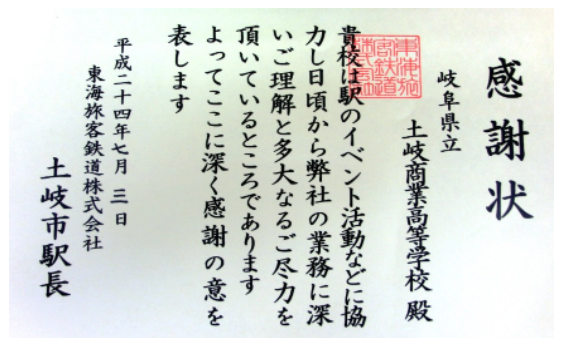 感謝状
岐阜県立
土岐商業高等学校 殿
貴校は駅のイベント活動などに協
力し日頃から弊社の業務に深
いご理解と多大なるご尽力を
頂いているところであります
よってここに深く感謝の意を
表します
平成二十四年七月三日
東海旅客鉄道株式会社
土岐市駅長
東海旅
客鉄道
株式会社